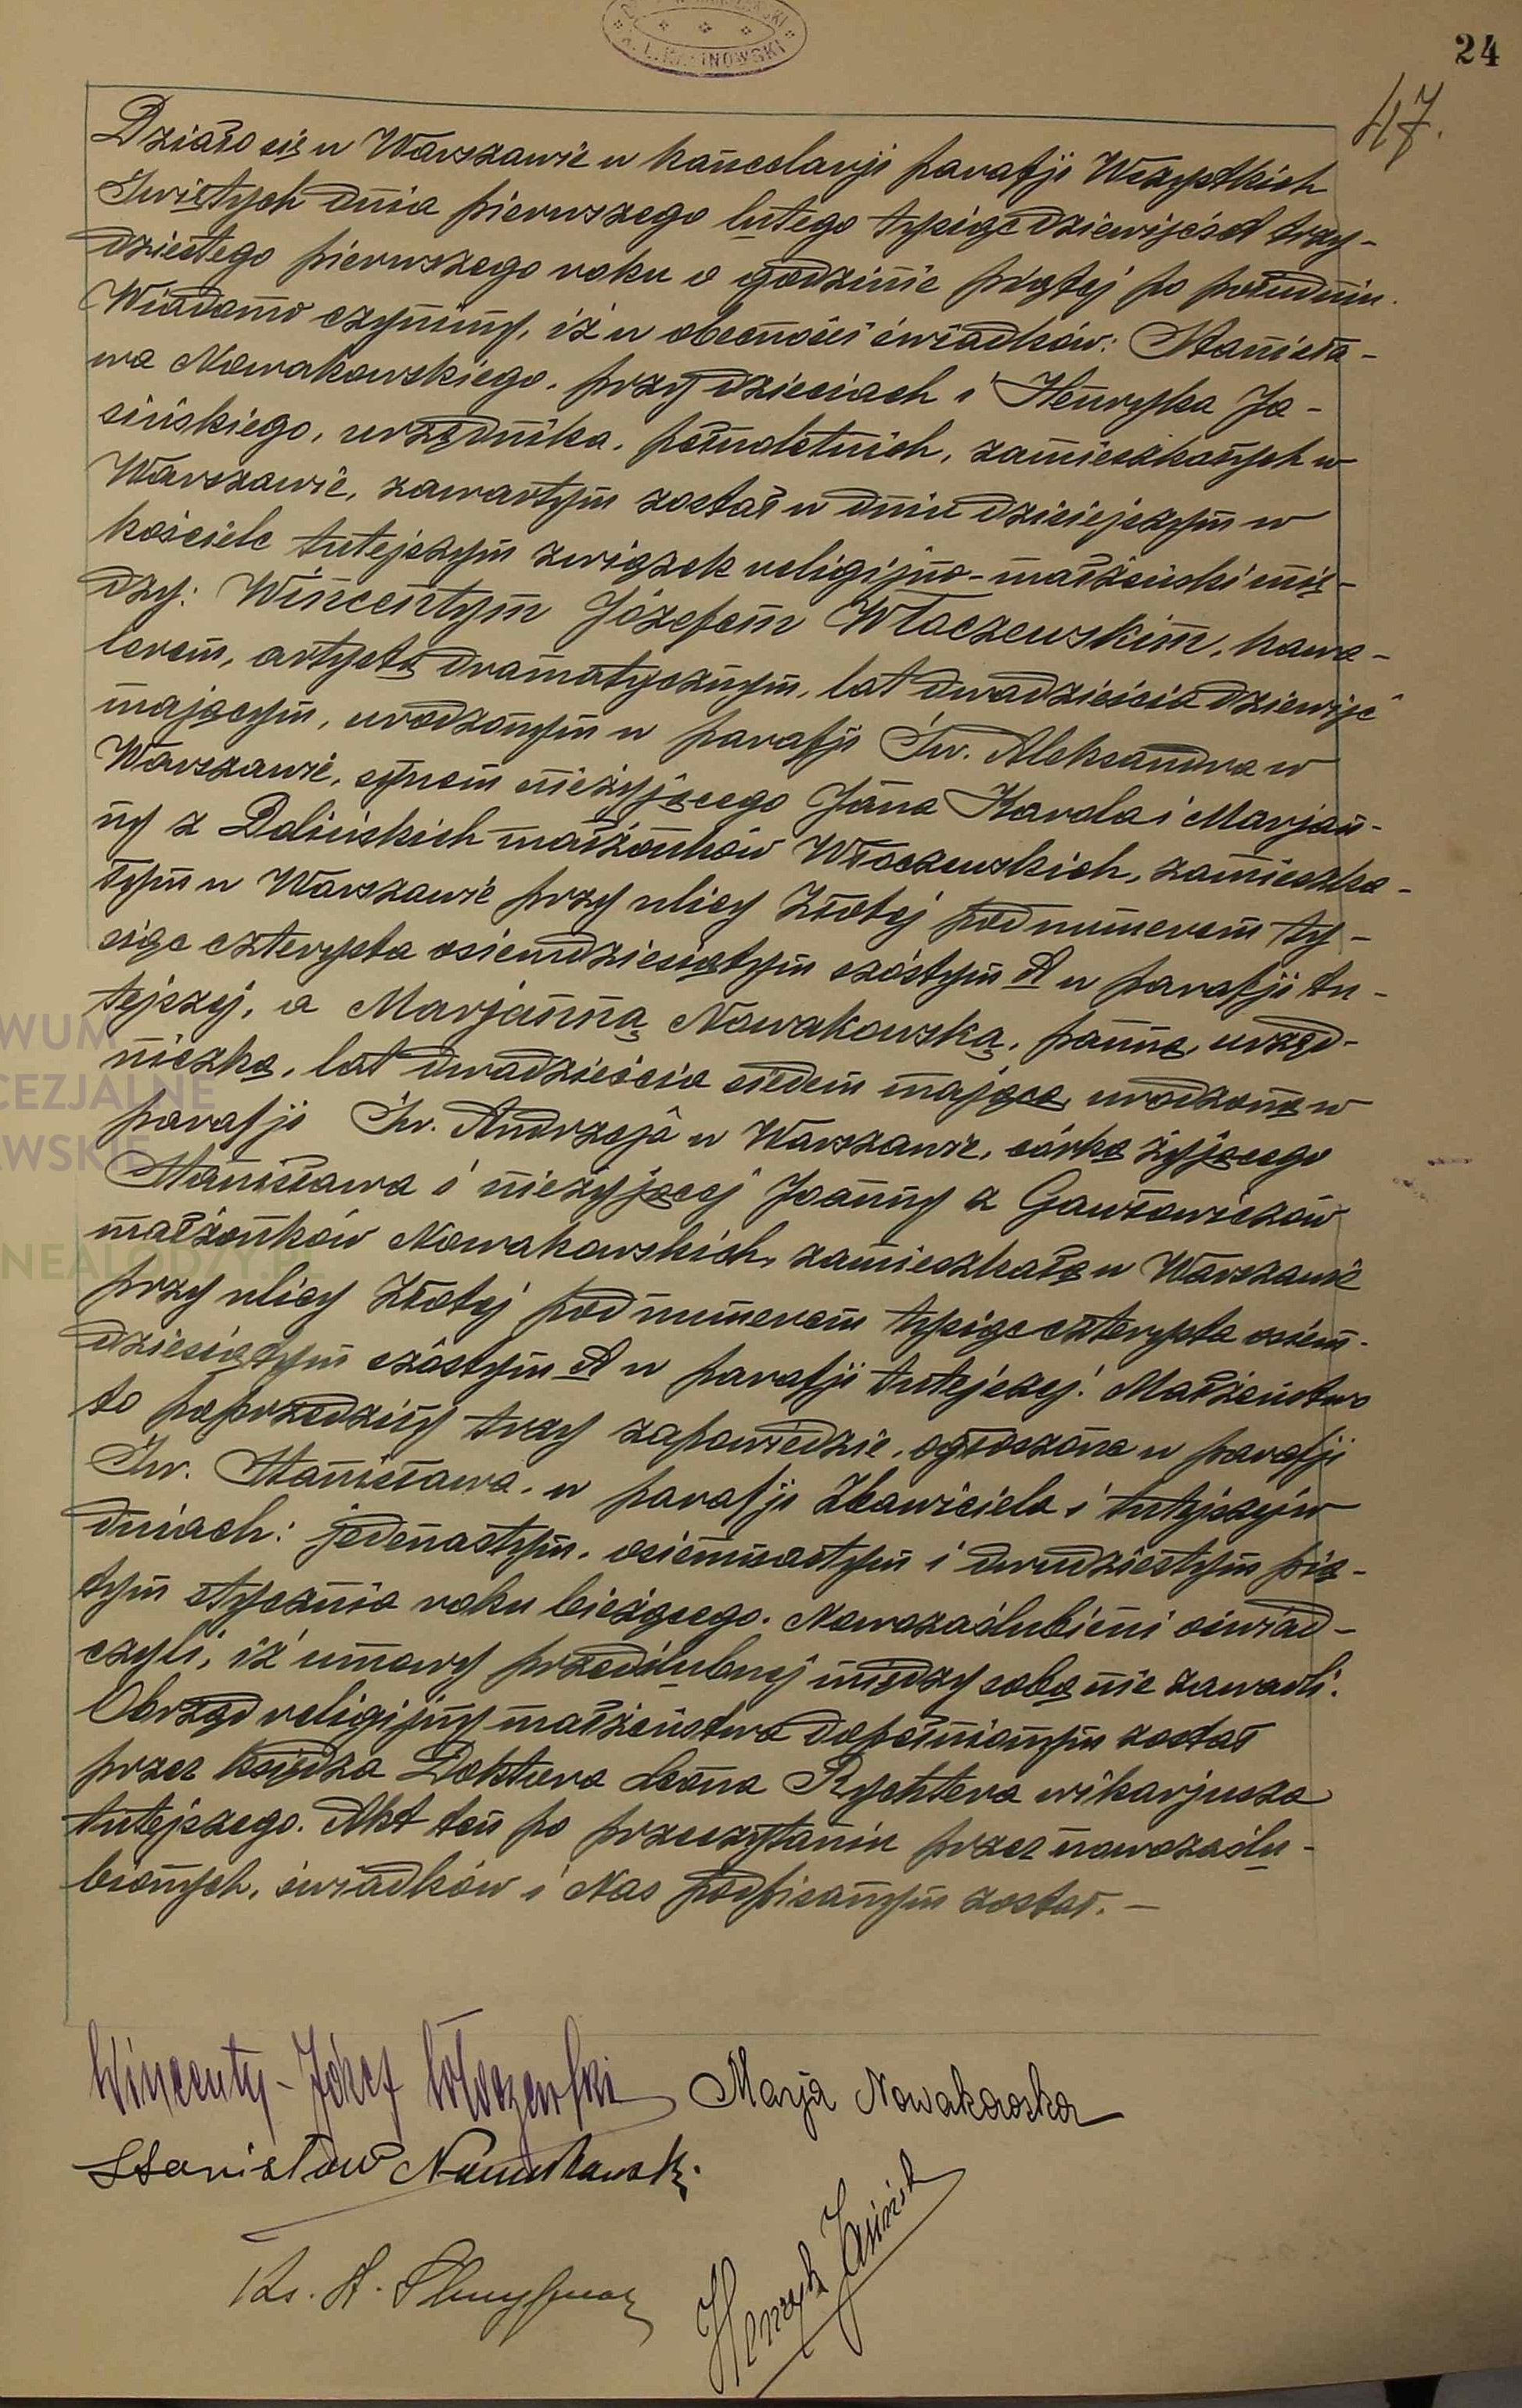 24
47.
Działo się w Warszawie w kancelarji parafji Wszystkich
Świętych dnia pierwszego lutego tysiąc dziewięćset trzy-
dziestego pierwszego roku o godzinie piątej po południu.
Wiadomo czynimy, iż w obecności świadków: Stanisła-
wa Nowakowskiego, przy dzieciach i Henryka Ja-
sińskiego, urzędnika, pełnoletnich, zamieszkałych w
Warszawie, zawartym został w dniu dzisiejszym w
kościele tutejszym związek religijno-małżeński mię-
dzy: Wincentym Józefem Włoczewskim, kawa-
lerem, artystą dramatycznym, lat dwadzieścia dziewięć
mającym, urodzonym w parafji Św. Aleksandra w
Warszawie, synem nieżyjącego Jana Karola i Marjan-
ny z Dalińskich małżonków Włoczewskich, zamieszka-
łym w Warszawie przy ulicy Złotej pod numerem ty-
siąc czterysta osiemdziesiątym szóstym A w parafji tu-
tejszej, a Marjanną Nowakowską, panną, urzęd-
niczką, lat dwadzieścia siedem mającą, urodzoną w
parafji Św. Andrzeja w Warszawie, córką żyjącego
Stanisława i nieżyjącej Joanny z Gawłowiczów
małżonków Nowakowskich, zamieszkałą w Warszawie
przy ulicy Złotej pod numerem tysiąc czterysta osiem-
dziesiątym szóstym A w parafji tutejszej. Małżeństwo
to poprzedziły trzy zapowiedzie, ogłoszone w parafji
Św. Stanisława, w parafji Zbawiciela i tutejszej w
dniach: jedenastym, osiemnastym i dwudziestym pią-
tym stycznia roku bieżącego. Nowozaślubieni oświad-
czyli, iż umowy przedślubnej między sobą nie zawarli.
Obrzęd religijny małżeństwa dopełnionym został
przez Księdza Doktora Leona Rychtera wikarjusza
tutejszego. Akt ten po przeczytaniu przez nowozaślu-
bionych, świadków i Nas podpisanym został. —
Wincenty-Józef Włoczewski Marja Nowakowska
Stanisław Nowakowski
Ks. A.
Henryk Jasiński